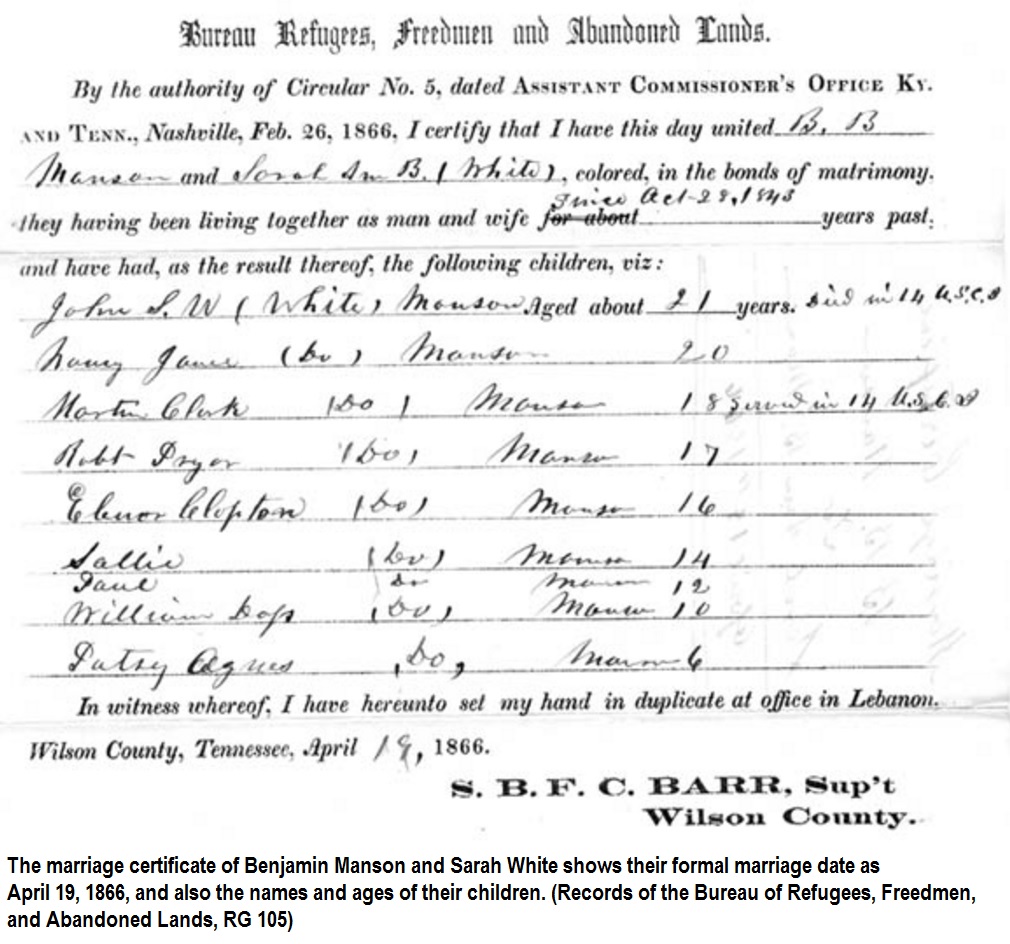 Bureau Refugees, Freedmen and Abandoned Lands.
By the authority of Circular No. 5, dated Assistant Commissioner's Office Ky.
and Tenn., Nashville, Feb. 26, 1866, I certify that I have this day united B. B
Manson and Sarah Ann B. (White), colored, in the bonds of matrimony,
Since Oct. 28, 1843
they having been living together as man and wife for about years past,
and have had, as the result thereof, the following children, viz:
John S. W (White) Manson Aged about 21 years. Died in 14 U.S.C.I
Nancy Jane (Do) Manson 20
Martin Clark (Do) Manson 18 Served in 14 U.S.C.I
Robt Pryor (Do) Manson 17
Elenor Clopton (Do) Manson 16
Sallie (Do) Manson 14
Do Manson 12
William (Do) Manson 10
Patsy Agnes (Do) Manson 6
In witness whereof, I have hereunto set my hand in duplicate at office in Lebanon,
Wilson County, Tennessee, April 19, 1866.
S. B. F. C. BARR, Sup't
Wilson County.
The marriage certificate of Benjamin Manson and Sarah White shows their formal marriage date as
April 19, 1866, and also the names and ages of their children. (Records of the Bureau of Refugees, Freedmen,
and Abandoned Lands, RG 105)